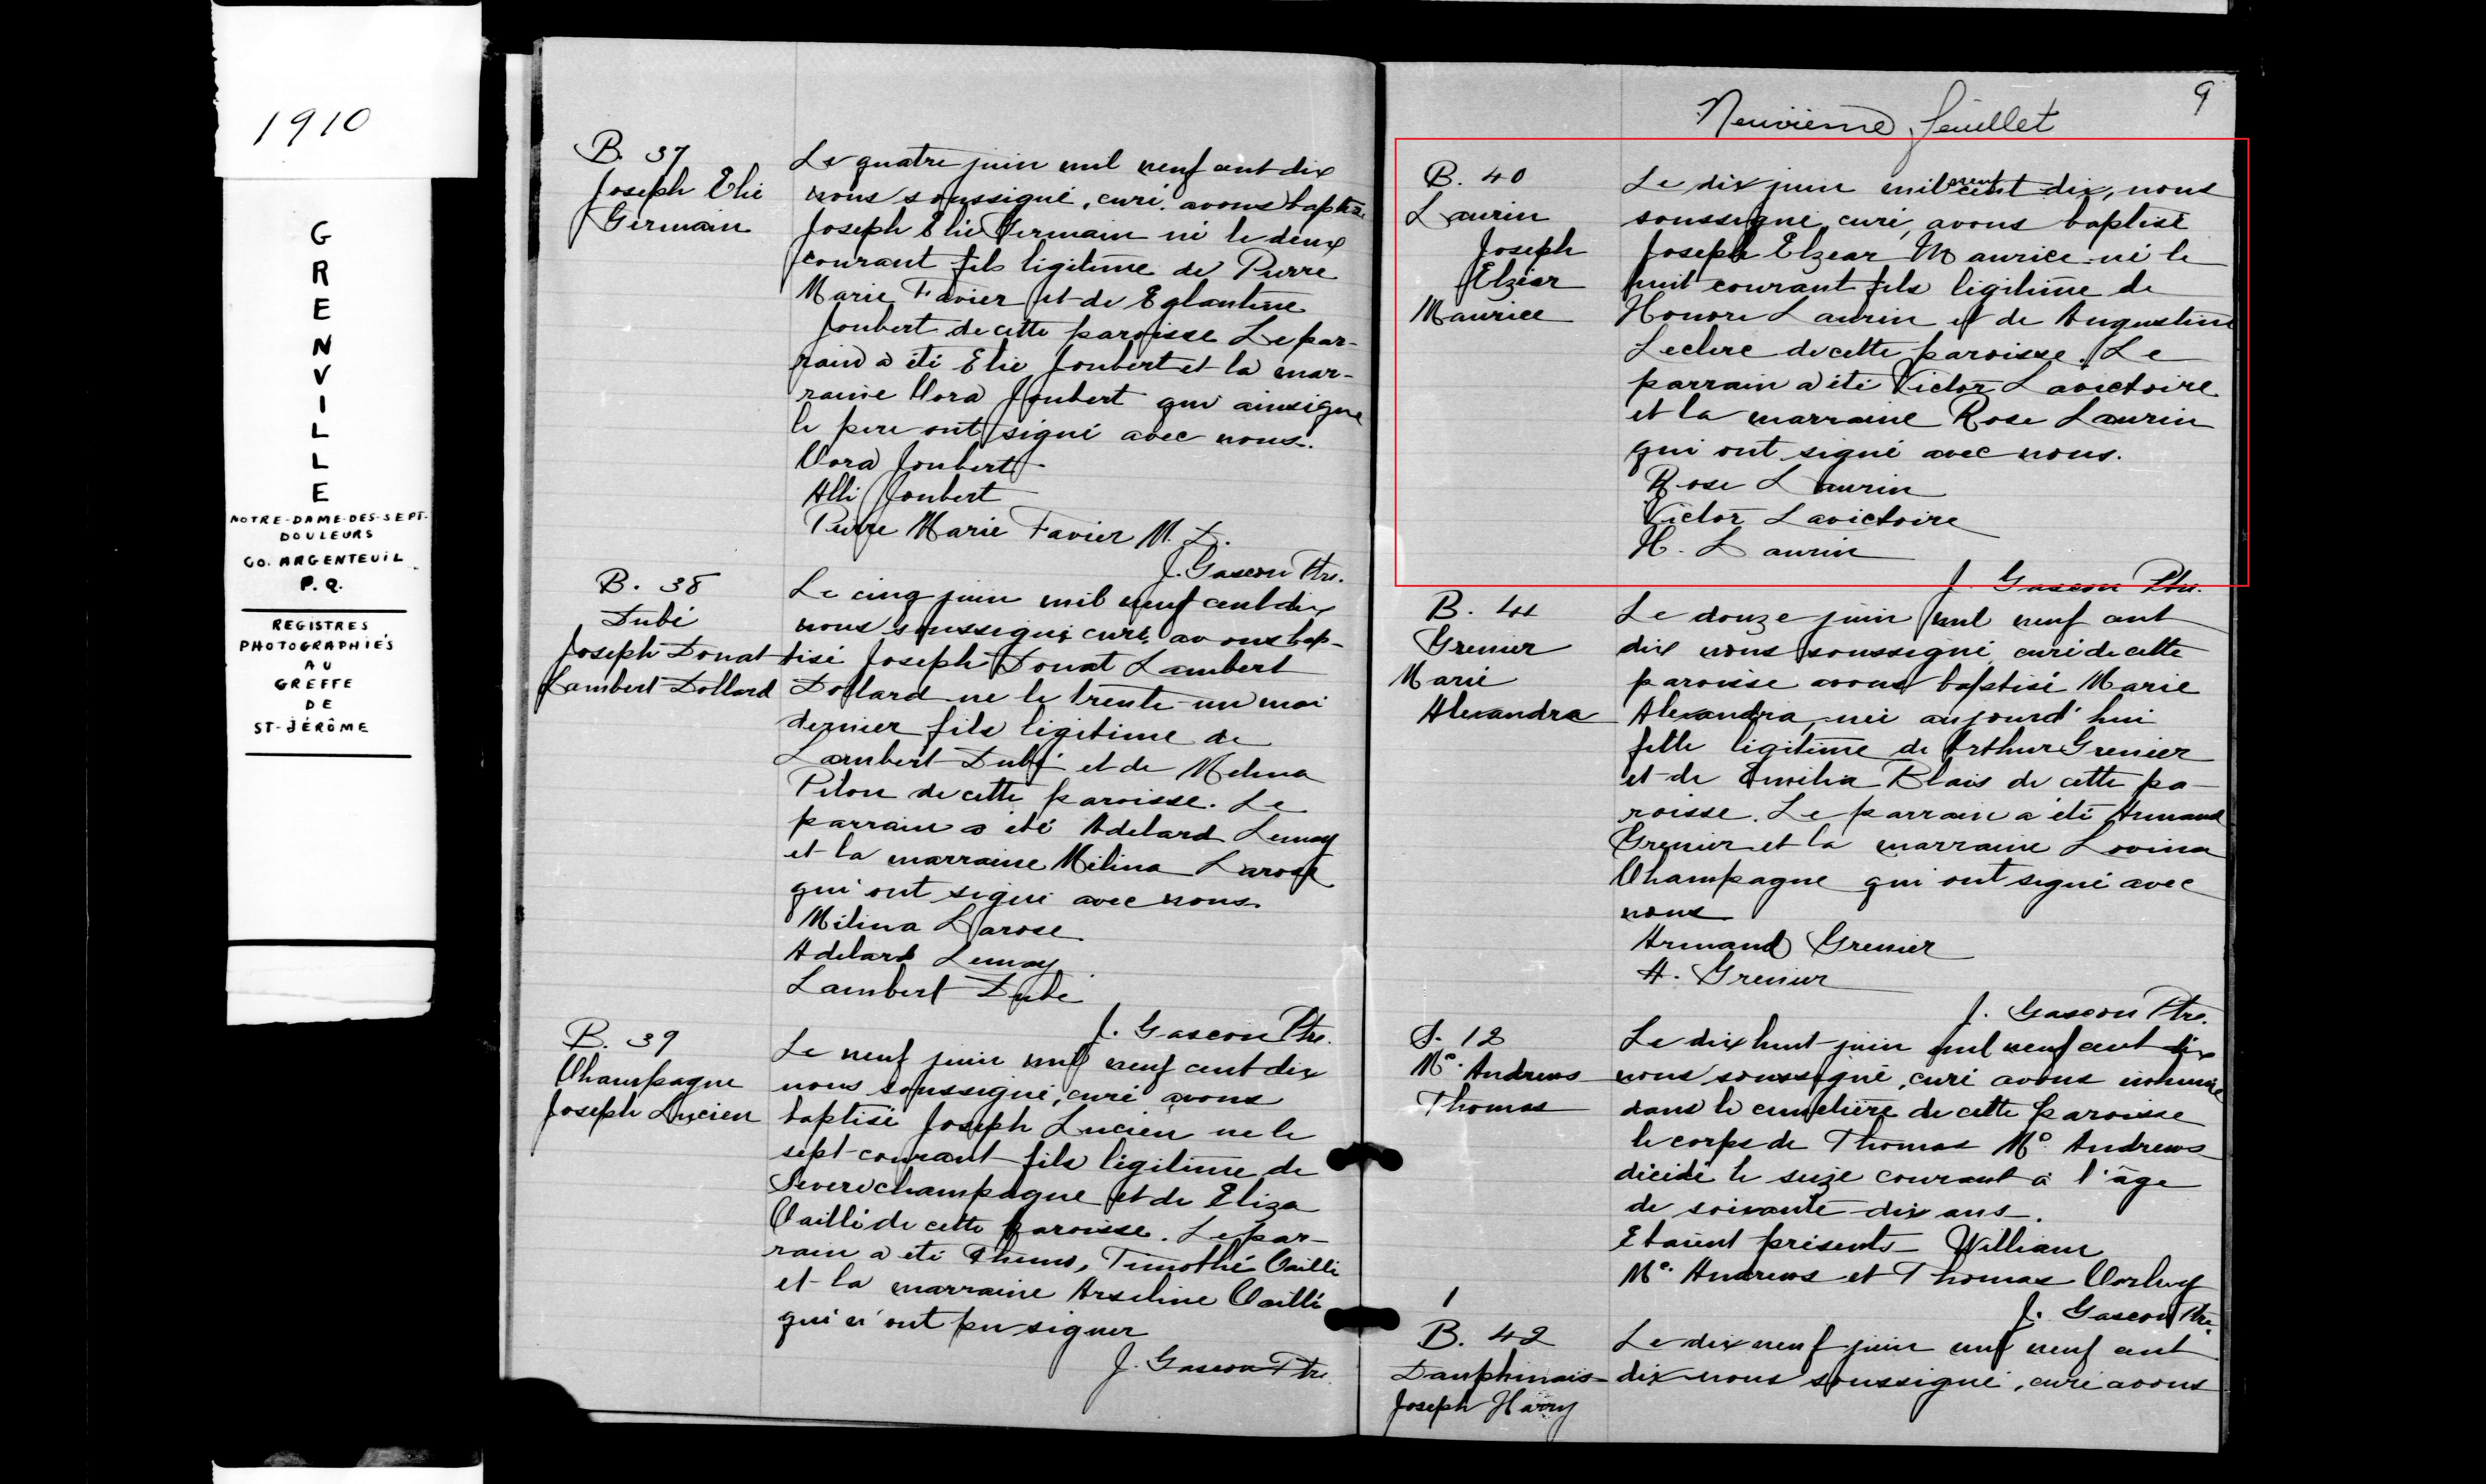 1910
GRENVILLE
NOTRE-DAME-DES-SEPT-
DOULEURS
CO. ARGENTEUIL
P.Q.
REGISTRES
PHOTOGRAPHIÉS
AU
GREFFE
DE
ST-JÉRÔME
B. 37
Joseph Elie
Germain
Le quatre juin mil neuf cent dix
nous soussigné, curé, avons baptisé
Joseph Elie Germain né le deux
courant fils légitime de Pierre
Marie Favier et de Eglantine
Joubert de cette paroisse Le par-
rain a été Elie Joubert et la mar-
raine Cora Joubert qui ainsi que
le père ont signé avec nous.
Cora Joubert
Joubert
Pierre Marie Favier M. D.
J. Gascon Ptre.
B. 38
Dubé
Joseph Donat
Lambert Dollard
Le cinq juin mil neuf cent dix
nous soussigné curé, avons bap-
tisé Joseph Donat Lambert
Dollard né le trente-un mai
dernier fils légitime de
Lambert Dubé et de Melina
Pilon de cette paroisse. Le
parrain a été Adelard Lemay
et la marraine Mélina Larose
qui ont signé avec nous.
Mélina Larose
Adelard Lemay
Lambert Dubé
J. Gascon Ptre.
B. 39
Champagne
Joseph Lucien
Le neuf juin mil neuf cent dix
nous soussigné, curé avons
baptisé Joseph Lucien né le
sept courant fils légitime de
Severe champagne et de Eliza
de cette paroisse. Le par-
rain a été Timothé
et la marraine Arseline
qui n'ont pu signer
J. Gascon Ptre.
9
Neuvième feuillet
B. 40
Laurin
Joseph
Elzéar
Maurice
Le dix juin mil neuf cent dix, nous
soussigné, curé, avons baptisé
Joseph Elzear Maurice né le
huit courant fils légitime de
Honoré Laurin et de Augustine
Leclerc de cette paroisse. Le
parrain a été Victor Lavictoire
et la marraine Rose Laurin
qui ont signé avec nous.
Rose Laurin
Victor Lavictoire
H. Laurin
J. Gascon Ptre.
B. 41
Grenier
Marie
Alexandra
Le douze juin mil neuf cent
dix nous soussigné, curé de cette
paroisse avons baptisé Marie
Alexandra, née aujourd'hui
fille légitime de Arthur Grenier
et de Emilia Blais de cette pa-
roisse. Le parrain a été Armand
Grenier et la marraine Lovina
Champagne qui ont signé avec
nous
Armand Grenier
A. Grenier
J. Gascon Ptre.
S. 12
Mc. Andrews
Thomas
Le dix huit juin mil neuf cent dix
nous soussigné, curé avons inhumé
dans le cimetière de cette paroisse
le corps de Thomas Mc Andrews
décédé le seize courant à l'âge
de soixante-dix ans.
Etaient présents William
Mc. Andrews et Thomas
J. Gascon Ptre.
B. 42
Dauphinais
Joseph Harry
Le dix neuf juin mil neuf cent
dix nous soussigné, curé avons